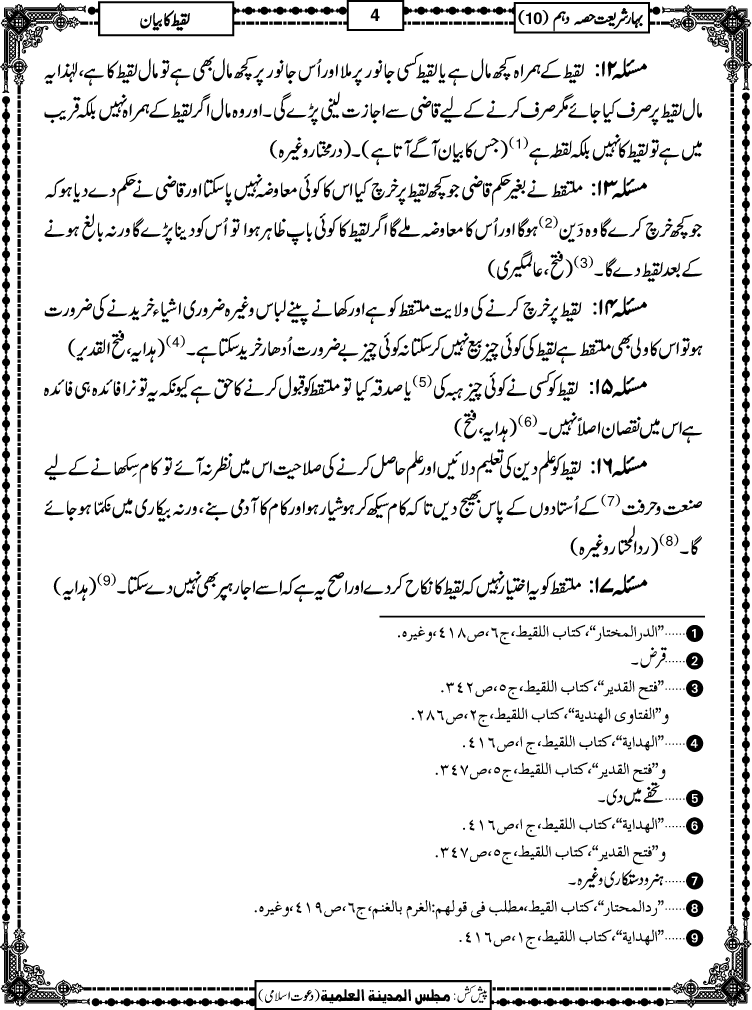 بہار شریعت حصہ دہم (10)
4
لقیط کا بیان
مسئلہ ۱۲: لقیط کے ہمراہ کچھ مال ہے یا لقیط کسی جانور پر ملا اور اُس جانور پر کچھ مال بھی ہے تو مال لقیط کا ہے، لہٰذا یہ
مال لقیط پر صرف کیا جائے مگر صرف کرنے کے لیے قاضی سے اجازت لینی پڑے گی۔ اور وہ مال اگر لقیط کے ہمراہ نہیں بلکہ قریب
میں ہے تو لقیط کا نہیں بلکہ لقطہ ہے (1) (جس کا بیان آگے آتا ہے)۔ (درمختار وغیرہ)
مسئلہ ۱۳: ملتقط نے بغیر حکم قاضی جو کچھ لقیط پر خرچ کیا اس کا کوئی معاوضہ نہیں پاسکتا اور قاضی نے حکم دے دیا ہو کہ
جو کچھ خرچ کرے گا وہ دَین (2) ہوگا اور اُس کا معاوضہ ملے گا اگر لقیط کا کوئی باپ ظاہر ہوا تو اُس کو دینا پڑے گا ورنہ بالغ ہونے
کے بعد لقیط دے گا۔ (3) (فتح، عالمگیری)
مسئلہ ۱۴: لقیط پر خرچ کرنے کی ولایت ملتقط کو ہے اور کھانے پینے لباس وغیرہ ضروری اشیاء خریدنے کی ضرورت
ہو تو اس کا ولی بھی ملتقط ہے لقیط کی کوئی چیز بیع نہیں کرسکتا نہ کوئی چیز بے ضرورت اُدھار خرید سکتا ہے۔ (4) (ہدایہ، فتح القدیر)
مسئلہ ۱۵: لقیط کو کسی نے کوئی چیز ہبہ کی (5) یا صدقہ کیا تو ملتقط کو قبول کرنے کا حق ہے کیونکہ یہ تو نرا فائدہ ہی فائدہ
ہے اس میں نقصان اصلاً نہیں۔ (6) (ہدایہ، فتح)
مسئلہ ۱۶: لقیط کو علم دین کی تعلیم دلائیں اور علم حاصل کرنے کی صلاحیت اس میں نظر نہ آئے تو کام سِکھانے کے لیے
صنعت و حرفت (7) کے اُستادوں کے پاس بھیج دیں تاکہ کام سیکھ کر ہوشیار ہو اور کام کا آدمی بنے، ورنہ بیکاری میں نکمّا ہو جائے
گا۔ (8) (ردالمحتار وغیرہ)
مسئلہ ۱۷: ملتقط کو یہ اختیار نہیں کہ لقیط کا نکاح کردے اور اصح یہ ہے کہ اسے اجارہ پر بھی نہیں دے سکتا۔ (9) (ہدایہ)
1 ......”الدرالمختار“، کتاب اللقیط، ج٦، ص٤١٨، وغیرہ.
2 ......قرض۔
3 ......”فتح القدیر“، کتاب اللقیط، ج٥، ص٣٤٢.
و”الفتاوی الھندیة“، کتاب اللقیط، ج٢، ص٢٨٦.
4 ......”الھدایة“، کتاب اللقیط، ج١، ص٤١٦.
و”فتح القدیر“، کتاب اللقیط، ج٥، ص٣٤٧.
5 ......تحفے میں دی۔
6 ......”الھدایة“، کتاب اللقیط، ج١، ص٤١٦.
و”فتح القدیر“، کتاب اللقیط، ج٥، ص٣٤٧.
7 ......ہنر و دستکاری وغیرہ۔
8 ......”ردالمحتار“، کتاب القیط، مطلب فی قولھم: الغرم بالغنم، ج٦، ص٤١٩، وغیرہ.
9 ......”الھدایة“، کتاب اللقیط، ج١، ص٤١٦.
پیش کش: مجلس المدینة العلمیة (دعوت اسلامی)